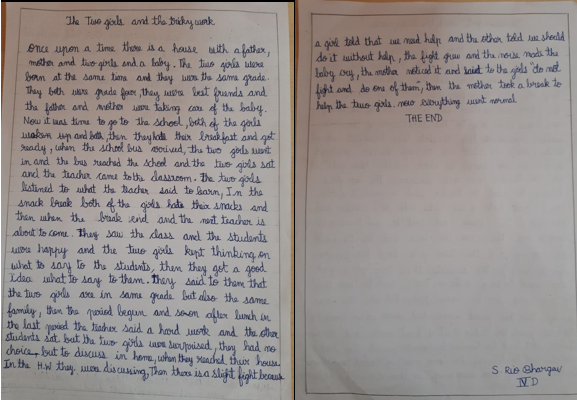 The Two girls and the tricky work
once upon a time there is a house with a father,
mother and two girls and a baby. The two girls were
born at the same time and they were the same grade.
They both were grade four, they were best friends and
the father and mother were taking care of the baby.
Now it was time to go to the school, both of the girls
woken up and bath, then they had their breakfast and got
ready, when the school bus arrived, the two girls went
in and the bus reached the school and the two girls sat
and the teacher came to the classroom. The two girls
listened to what the teacher said to learn, In the
snack break both of the girls had their snacks and
then when the break end and the next teacher is
about to come. They saw the class and the students
were happy and the two girls kept thinking on
what to say to the students, then they got a good
idea what to say to them. they said to them that
the two girls are in same grade but also the same
family, then the period begun and soon after lunch in
the last period the teacher said a hard work and the other
students sat but the two girls were surprised, they had no
choice, but to discuss in home, when they reached their house
In the H.W they were discussing, Then there is a slight fight because
a girl told that we need help and the other told we should
do it without help, the fight grew and the noise made the
baby cry, the mother noticed it and said to the girls "do not
fight and do one of them, then the mother took a break to
help the two girls. now everything went normal
THE END
S. Rio Bhargav
IV D